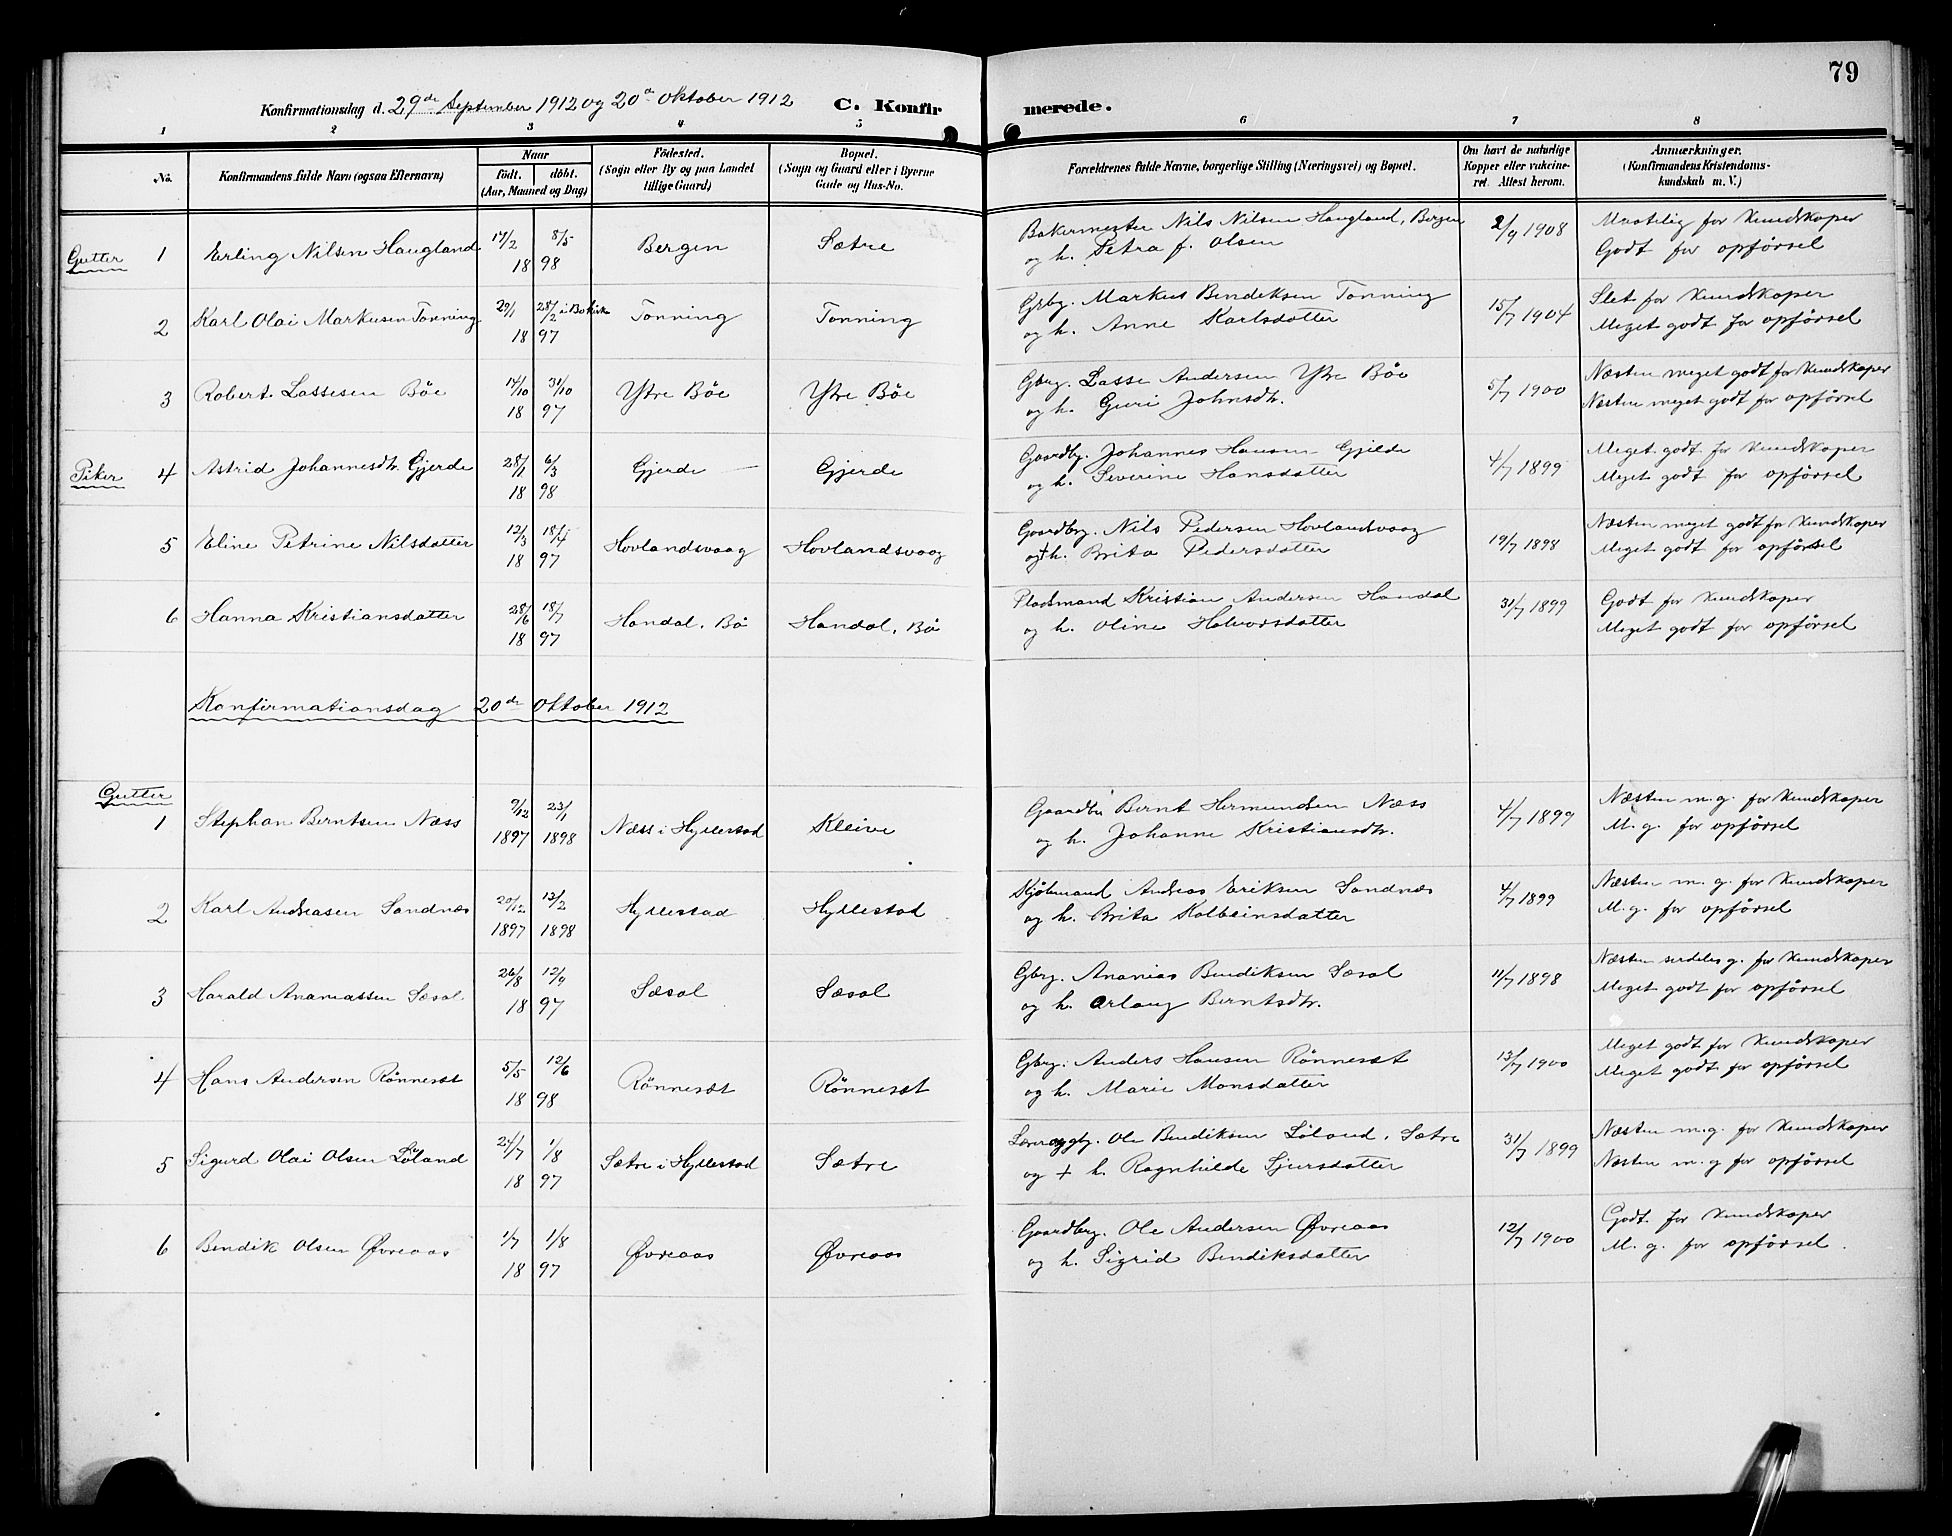 79
Konfirmationsdag d. 29de September 1912 og 20de Oktober 1912 C. Konfirmerede.
1 2 3 4 5 6 7 8
No. Konfirmandens fulde Navn (ogsaa Efternavn) Naar født. døbt. (Aar, Maaned og Dag) Fødested. (Sogn eller By og paa Landet tillige Gaard) Bopæl. (Sogn og Gaard eller i Byerne Gade og Hus-No. Forældrenes fulde Navne, borgerlige Stilling (Næringsvei) og Bopæl. Om havt de naturlige Kopper eller vakcineret. Attest herom. Anmærkninger. (Konfirmandens Kristendomskundskab m. V.)
Gutter 1 Erling Nilsen Haugland 8/5 1898 Bergen Sætre Bakermester Nils Nilsen Haugland, Bergen 2/9 1908 Maatelig for Kundskaper
og h. Petra f. Olsen Godt for opførsel
2 Karl Olai Markusen Tonning 29/1 28/2 i Bø kirke 1897 Tonning Tonning Grbg. Markus Bendiksen Tonning 15/7 1904 Slet for Kundskaper
og h. Anne Karlsdatter Meget godt for opførsel
3 Robert Lassesen Böe 14/10 31/10 1897 Ytre Böe Ytre Böe Gbrg. Lasse Andersen Ytre Böe 5/7 1900 Næsten meget godt for Kundskaper
og h. Guri Johnsdtr. Næsten meget godt for opførsel
Piker 4 Astrid Johannesdtr. Gjerde 28/1 6/3 1898 Gjerde Gjerde Gaardbg. Johannes Hansen 4/7 1899 Meget godt for Kundskaper
og h. Severine Hansdatter Meget godt for opførsel
5 Eline Petrine Nilsdatter 12/3 18/4 1897 Hovlandsvaag Hovlandsvaag Gaardbg. Nils Pedersen Hovlandsvaag 19/7 1898 Næsten meget godt for Kundskaper
og † h. Brita Pedersdatter Meget godt for opførsel
6 Hanna Kristiansdatter 28/6 18/7 1897 Handal, Bö Handal, Bö Pladsmand Kristian Andersen Handal 31/7 1899 Godt for Kundskaper
og h. Oline Halvorsdatter Meget godt for opførsel
Konfirmationsdag 20de Oktober 1912
Gutter 1 Stephan Berntsen Næss 9/12 1897 23/1 1898 Næss i Hyllestad Kleive Gaardbr Bernt Hermundsen Næss 4/7 1899 Næsten m. g. for Kundskaper
og h. Johanne Kristiansdtr. M. g. for opførsel
2 Karl Andreasen Sandnæs 20/12 1897 13/2 1898 Hyllestad Hyllestad Kjøbmand Andreas Eriksen Sandnæs 4/7 1899 Næsten m. g. for Kundskaper
og h. Brita Kolbeinsdatter M. g. for opførsel
3 Harald Ananiassen Sæsol 26/8 12/9 1897 Sæsol Sæsol Gbrg. Ananias Bendiksen Sæsol 11/7 1898 Næsten serdeles g. for Kundskaper
og h. Orlaug Berntsdtr. Meget godt for opførsel
4 Hans Andersen Rönnesæt 5/5 12/6 1898 Rönnesæt Rönnesæt Gbrg. Anders Hansen Rönnesæt 13/7 1900 Meget godt for Kundskaper
og h. Marie Monsdatter Meget godt for opførsel
5 Sigurd Olai Olsen Löland 24/7 1/8 1897 Sætre i Hyllestad Sætre Lærer og gbg. Ole Bendiksen Löland, Sætre 31/7 1899 Næsten m. g. for Kundskaper
og † h. Ragnhilde Sjursdatter Næsten m. g for opførsel
6 Bendik Olsen Øvreaas 1/7 1/8 1897 Øvreaas Øvreaas Gaardbrg. Ole Andersen Øvreaas 12/7 1900 Godt for Kundskaper
og h. Sigrid Bendiksdatter M. g. for opførsel.